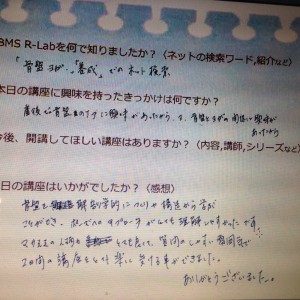 BMS R-Labを何で知りましたか？〈ネットの検索ワード,紹介など〉
「骨盤ヨガ」、「養成」でのネット検索
本日の講座に興味を持ったきっかけは何ですか？
産後の骨盤のケアに興味があったから、又、骨盤とヨガの関係に興味が
あったから
今後、開講してほしい講座はありますか？〈内容,講師,シリーズなど〉
日の講座はいかがでしたか？（感想）
骨盤を解剖学的につくりや構造から学ぶ
ことができ、
とても理解しやすかったです。
とても良くて、質問のしやすい雰囲気で
2日間の講座をとても楽に受ける事ができました。
ありがとうございました。